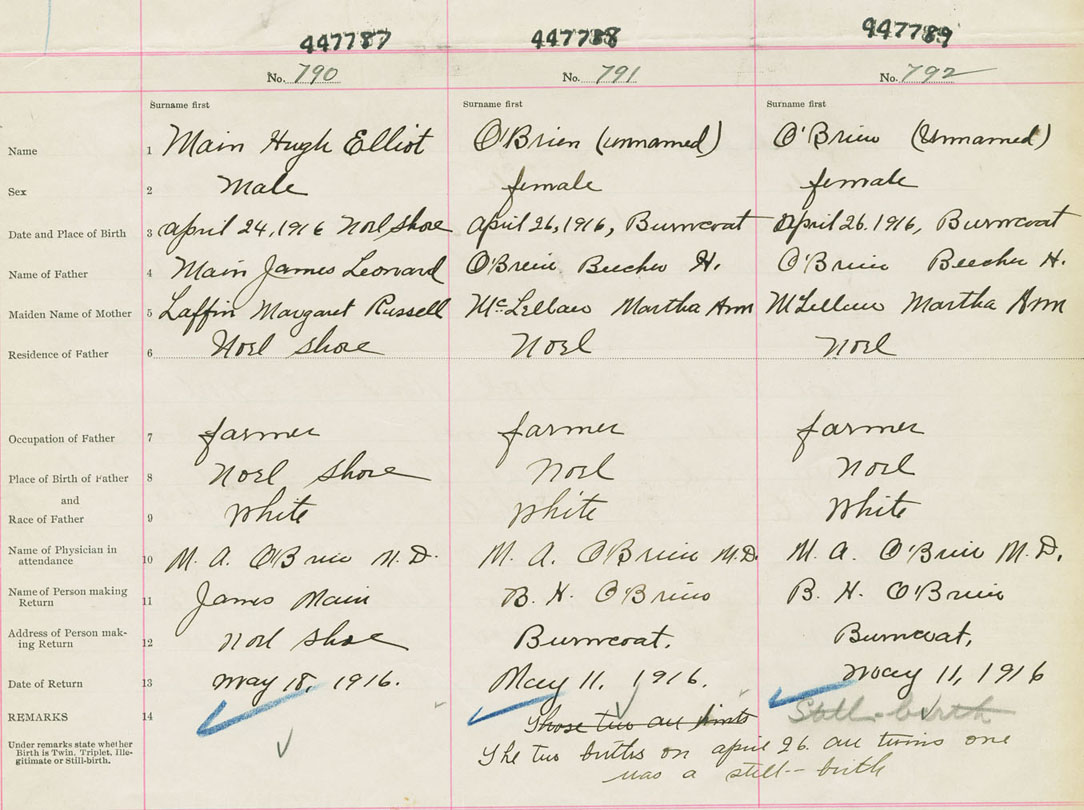 447787 447788 447789
No. 790 No. 791 No. 792
Surname first Surname first Surname first
Name 1 Main Hugh Elliot O'Brien (unnamed) O'Brien (Unnamed)
Sex 2 Male female female
Date and Place of Birth 3 april 24, 1916 Noel Shore april 26, 1916, Burncoat April 26. 1916, Burncoat
Name of Father 4 Main James Leonard O'Brien Beecher H. O'Brien Beecher H.
Maiden Name of Mother 5 Laffin Margaret Russell McLellan Martha Ann McLellan Martha Ann
Residence of Father 6 Noel Shore Noel Noel
Occupation of Father 7 farmer farmer farmer
Place of Birth of Father 8 Noel Shore Noel Noel
and
Race of Father 9 White White White
Name of Physician in
attendance 10 M. A. O'Brien M.D. M. A. O'Brien M.D. M. A. O'Brien M.D.
Name of Person making
Return 11 James Main B. H. O'Brien B. H. O'Brien
Address of Person mak-
ing Return 12 Noel Shore Burncoat. Burncoat,
Date of Return 13 May 18, 1916. May 11, 1916. May 11, 1916
REMARKS 14 Those two are Still-birth
Under remarks state whether
Birth is Twin, Triplet, Ille-
gitimate or Still-birth.
The two births on april 26. are twins one
was a still-birth